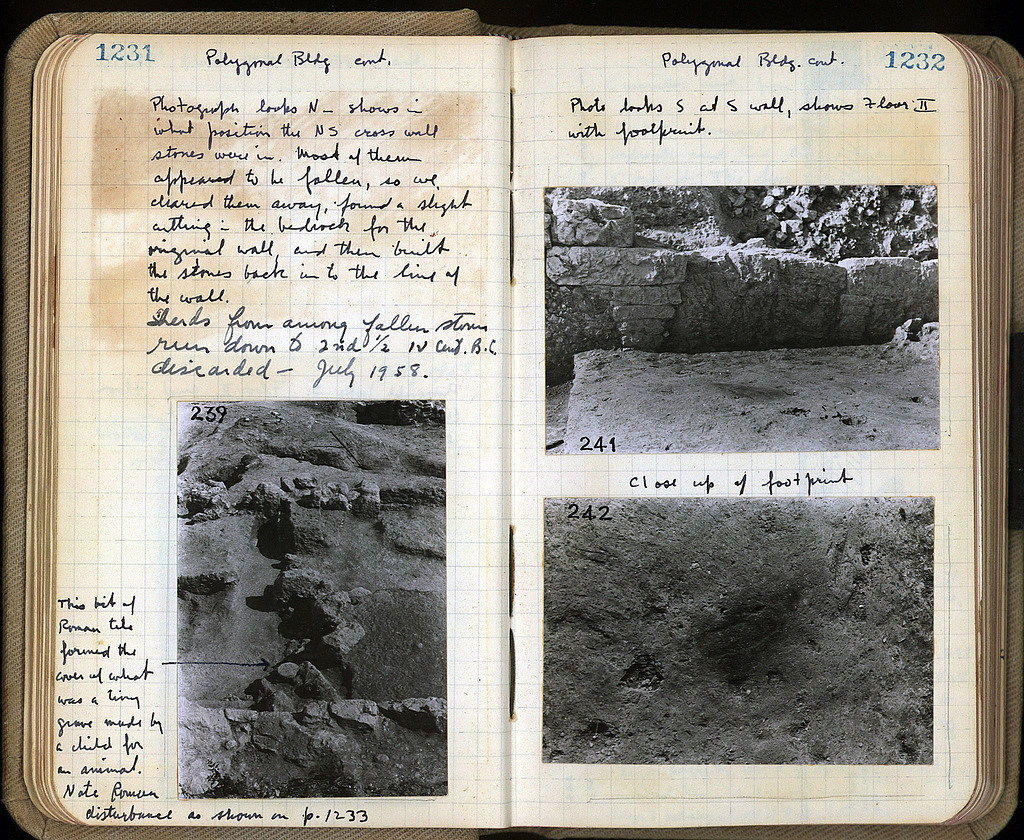 1231
Polygonal Bldg cont.
Photograph looks N – shows in
what position the NS cross wall
stones were in. Most of them
appeared to be fallen, so we
cleared them away, found a slight
cutting in the bedrock for the
original wall, and then built
the stones back in to the line of
the wall.
Sherds from among fallen stones
run down to 2nd ½ IV Cent. B.C.
discarded – July 1958.
239
This bit of
Roman tile
formed the
cover of what
was a tiny
grave made by
a child for
an animal.
Note Roman
disturbance as shown on p. 1233
1232
Polygonal Bldg. cont.
Photo looks S at S wall, shows Floor II
with footprint.
241
Close up of footprint
242